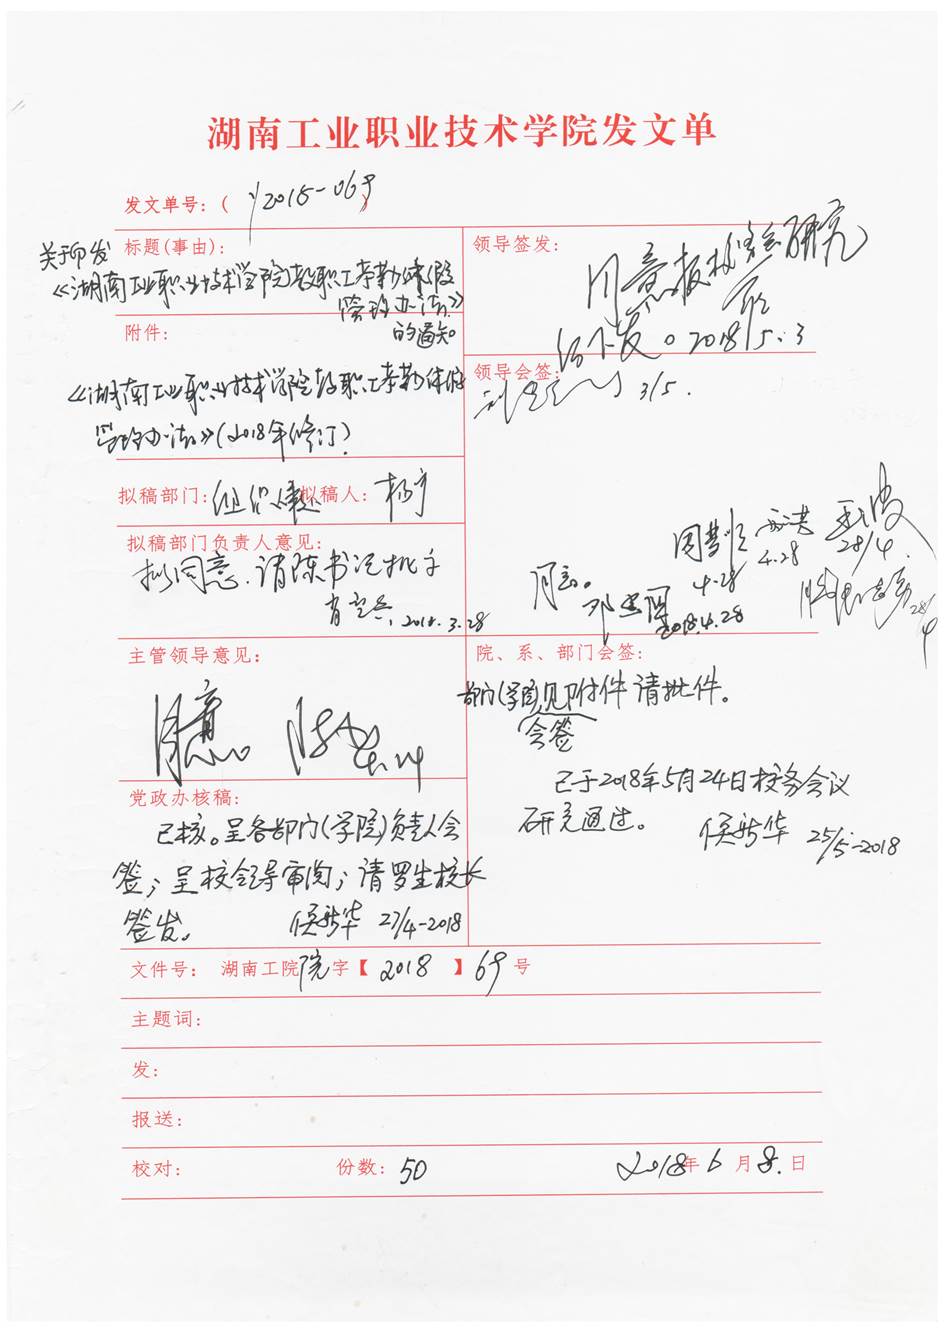 湖南工业职业技术学院发文单
发文单号：( 2018-069 )
标题(事由)：
关于印发
《湖南工业职业技术学院教职工考勤休假
管理办法》
的通知
附件：
《湖南工业职业技术学院教职工考勤休假
管理办法》(2018年修订)
领导签发：
同意 报校务会研究
后下发。2018/5.3
领导会签：
3/5.
拟稿部门：组织人事处 拟稿人：杨宇
拟稿部门负责人意见：
拟同意，请陈书记批示
2018.3.28
4.28
4-28
28/4.
同意。
2018.4.28
28/4
主管领导意见：
同意。
院、系、部门会签：
部门(学院)见附件 请批件。
会签
已于2018年5月24日校务会议
研究通过。 侯新华 25/5-2018
党政办核稿：
已核。呈各部门(学院)负责人会
签；呈校领导审阅；请罗生校长
签发。 侯新华 27/4-2018
文件号： 湖南工院院字【 2018 】69号
主题词：
发：
报送：
校对： 份数：50 2018年6月8日